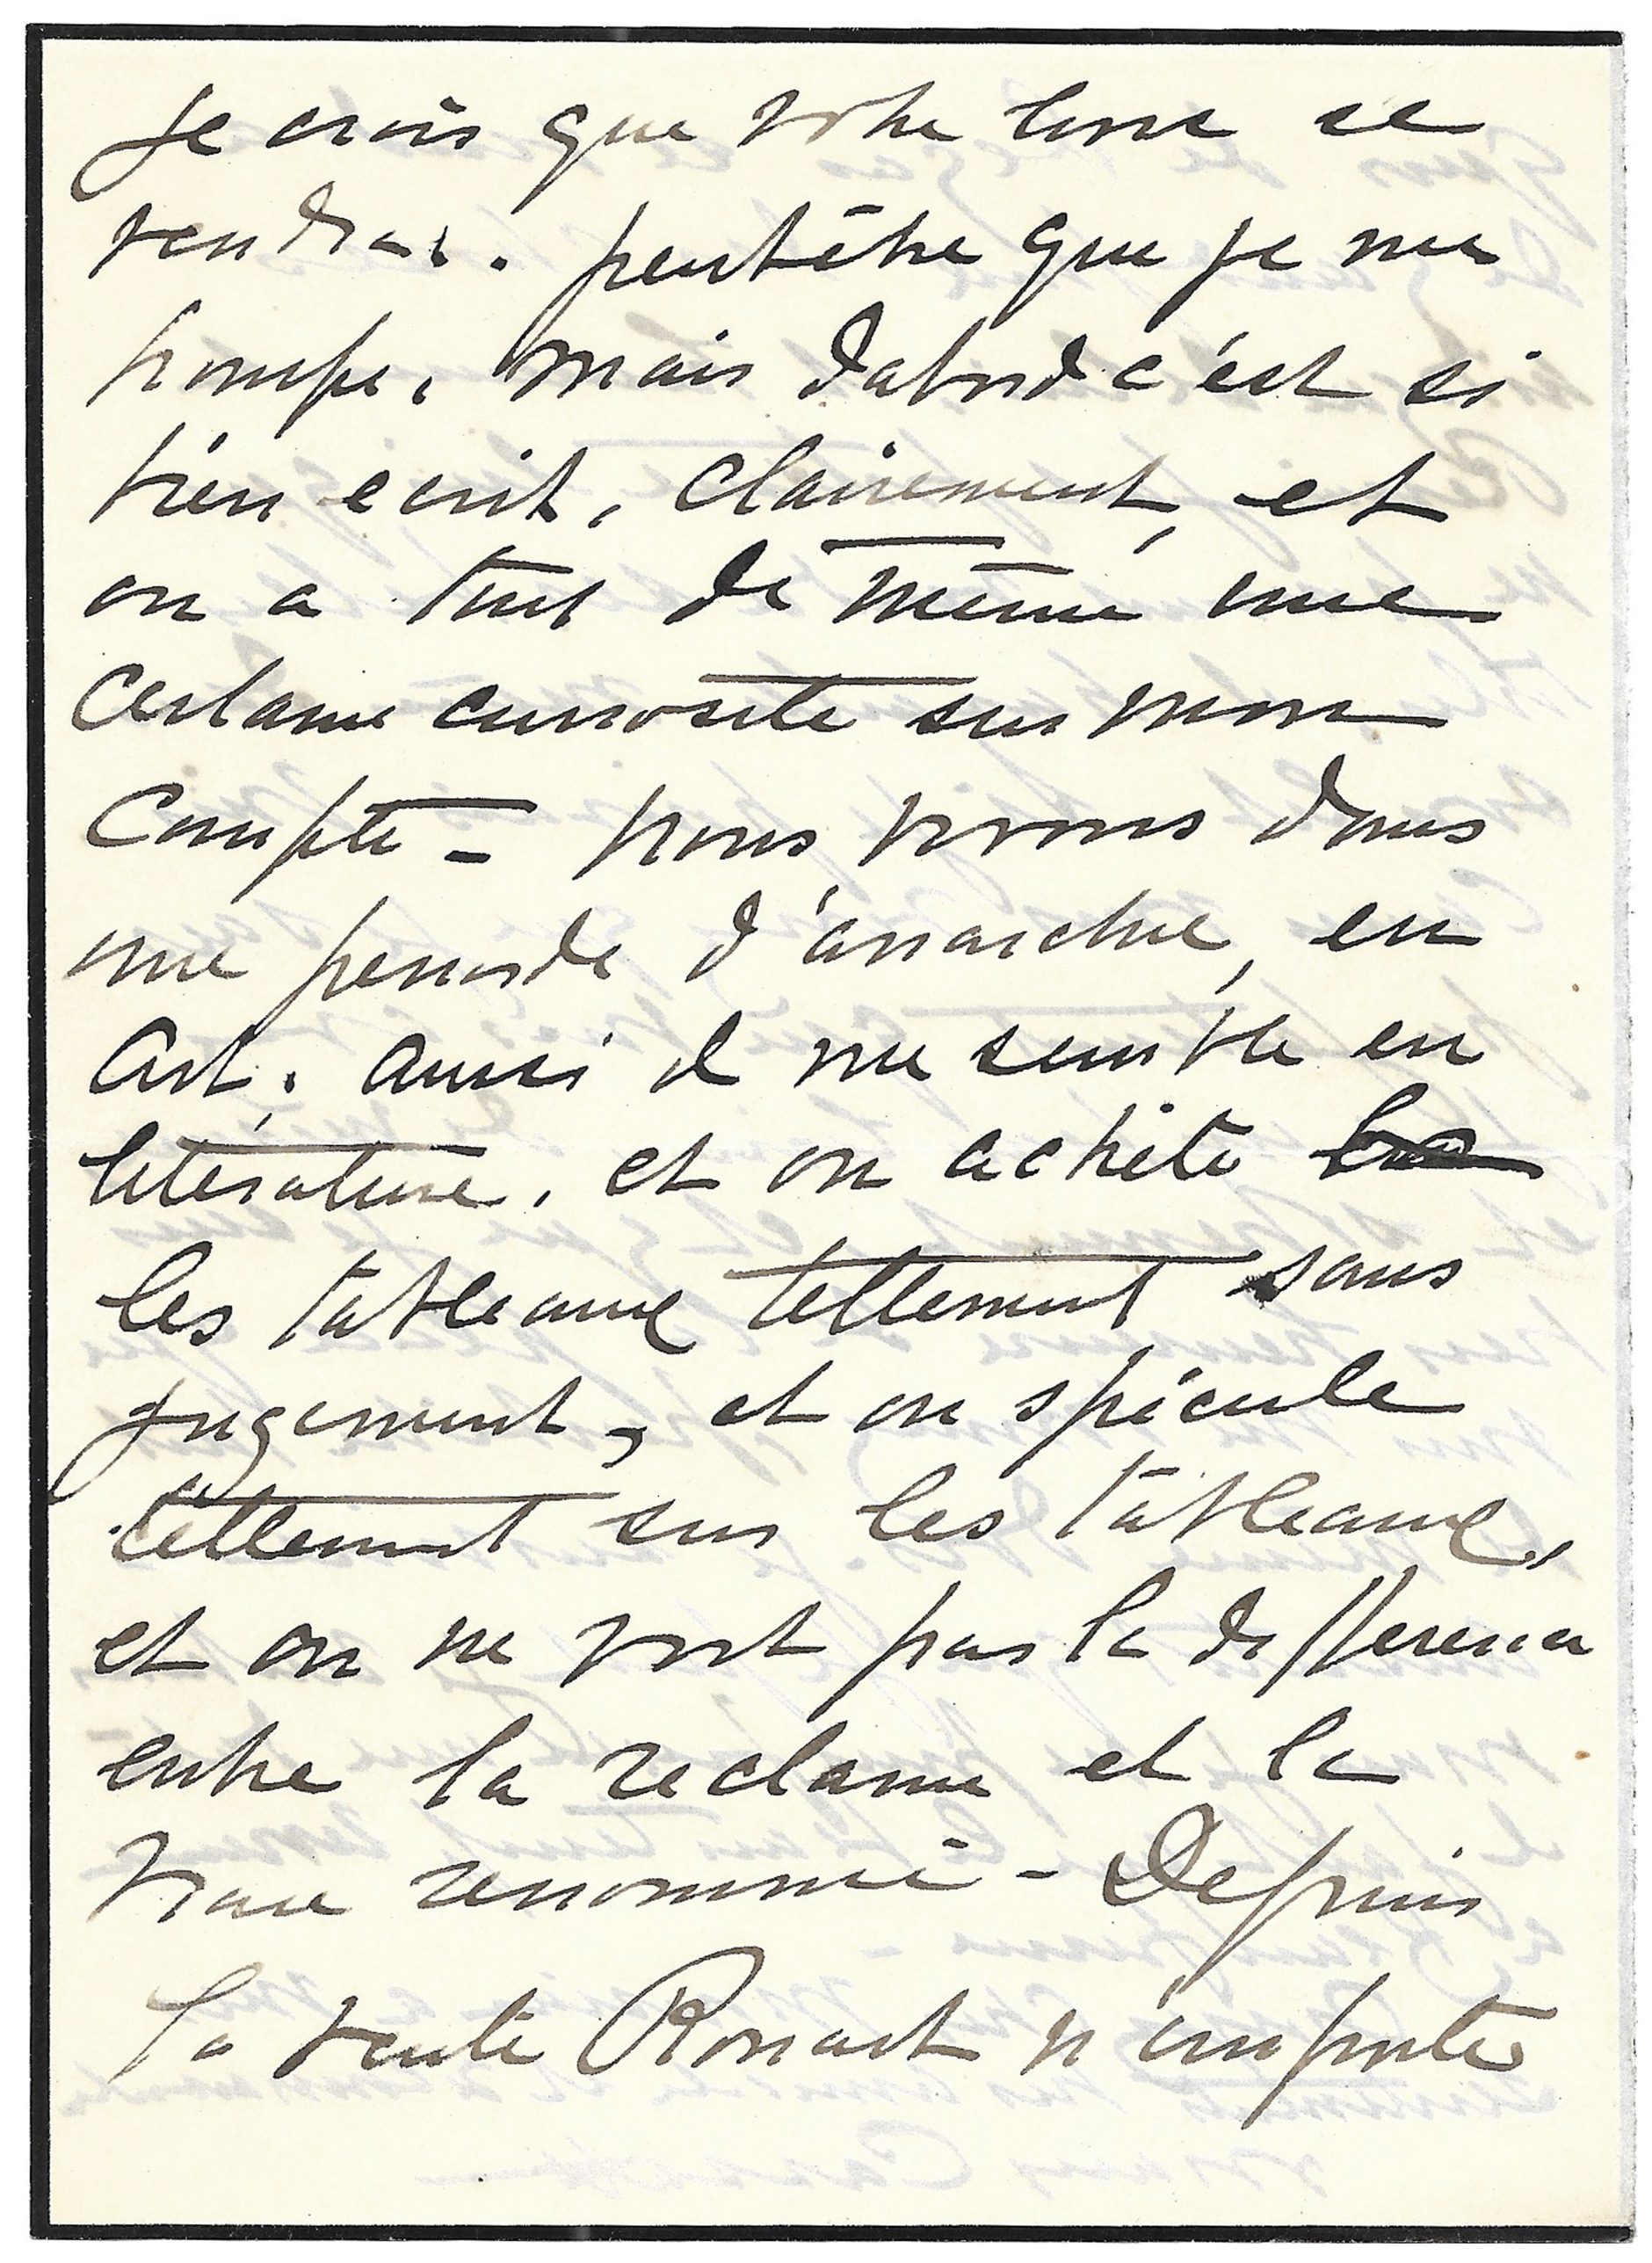 Je crois que votre livre se
vendra. peutêtre que je me
trompe, mais dabord c'est si
bien ecrit, clairement, et
on a tout de même une
certaine curiosité sur mon
compte - nous vivons dans
une periode d'anarchie, en
Art, aussi il me semble en
litérature, et on achète
les tableaux tellement sans
jugement, et on spécule
tellement sur les tableaux,
et on ne voit pas la difference
entre la reclame et la
vraie renommé - Depuis
la vente Rouart n'importe